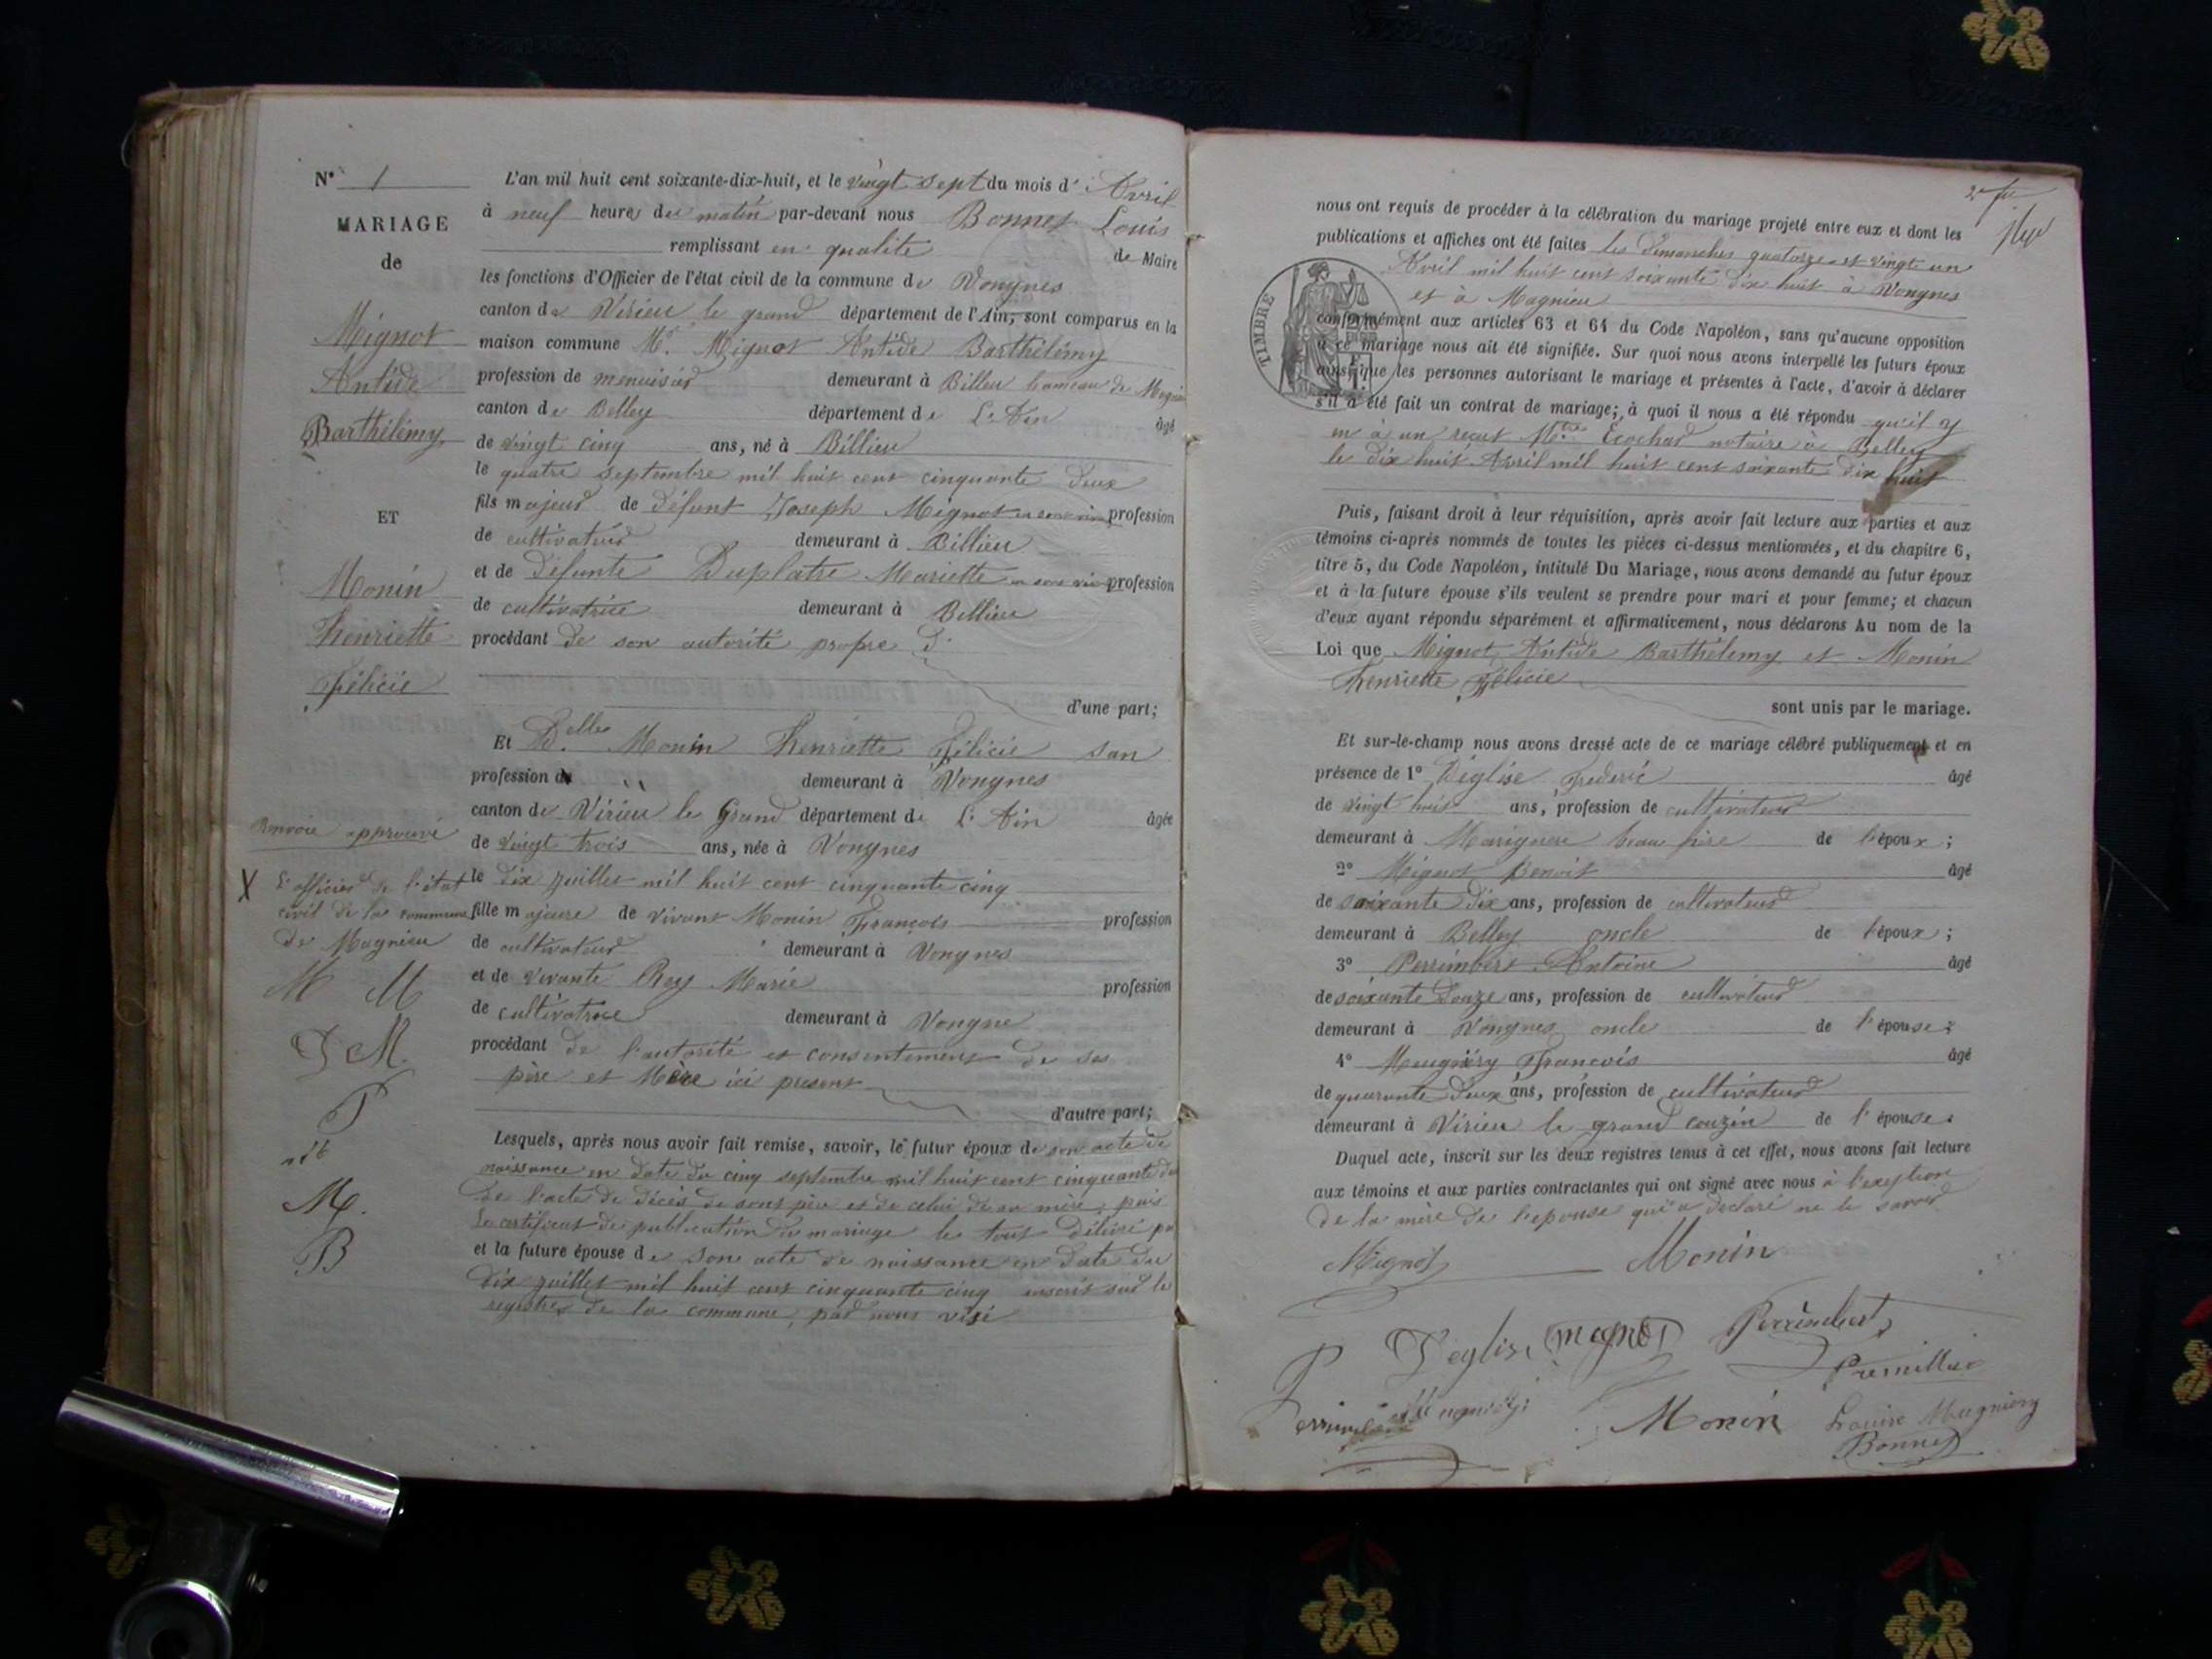 N° 1
MARIAGE
de
Mignot
Antide
Barthélémy
ET
Monin
henriette
Félicie
Renvoie approuvé
X L'officier de l'état
civil de la commune
de Magnieu
M M
D M.
P
M.
B
L'an mil huit cent soixante-dix-huit, et le vingt sept du mois d'Avril
à neuf heures du matin par-devant nous Bonnet Louis
remplissant en qualité de Maire
les fonctions d'Officier de l'état civil de la commune de Vongnes
canton de Virieu le grand département de l'Ain, sont comparus en la
maison commune Mr. Mignot Antide Barthélémy
profession de menuisier demeurant à Billieu hameau de
canton de Belley département de L'Ain âgé
de vingt cinq ans, né à Billieu
le quatre septembre mil huit cent cinquante deux
fils majeur de défunt Joseph Mignot profession
de cultivateur demeurant à Billieu
et de défunte Duplatre Mariette profession
de cultivatrice demeurant à Billieu
procédant de son autorité propre d'
d'une part;
Et Delle Monin henriette Félicie san
profession de " demeurant à Vongnes
canton de Virieu le Grand département de L'Ain âgée
de vingt trois ans, née à Vongnes
le dix juillet mil huit cent cinquante cinq
fille majeure de vivant Monin François profession
de cultivateur demeurant à Vongnes
et de vivante Rey Marie profession
de cultivatrice demeurant à Vongne
procédant de l'autorité et consentement de ses
père et Mère ici present
d'autre part;
Lesquels, après nous avoir fait remise, savoir, le futur époux de son acte de
naissance en date du cinq septembre mil huit cent cinquante
de l'acte de décès de sont père et de celui de sa mère, puis
le certificat de publication de mariage le tout délivré
et la future épouse de sont acte de naissance en date du
dix juillet mil huit cent cinquante cinq inscrit sur le
registres de la commune, par nous visé
nous ont requis de procéder à la célébration du mariage projeté entre eux et dont les
publications et affiches ont été faites les dimanches quatorze et vingt un
Avril mil huit cent soixante dix huit à Vongnes
et à Magnieu
TIMBRE
conformément aux articles 63 et 64 du Code Napoléon, sans qu'aucune opposition
à ce mariage nous ait été signifiée. Sur quoi nous avons interpellé les futurs époux
ainsi que les personnes autorisant le mariage et présentes à l'acte, d'avoir à déclarer
s'il a été fait un contrat de mariage; à quoi il nous a été répondu qu'il y
en à un reçut Mtre Ecochard notaire à Belley
le dix huit Avril mil huit cent soixante dix huit
Puis, faisant droit à leur réquisition, après avoir fait lecture aux parties et aux
témoins ci-après nommés de toutes les pièces ci-dessus mentionnées, et du chapitre 6,
titre 5, du Code Napoléon, intitulé Du Mariage, nous avons demandé au futur époux
et à la future épouse s'ils veulent se prendre pour mari et pour femme; et chacun
d'eux ayant répondu séparément et affirmativement, nous déclarons Au nom de la
Loi que Mignot Antide Barthélemy et Monin
henriette Félicie
sont unis par le mariage.
Et sur-le-champ nous avons dressé acte de ce mariage célébré publiquement et en
présence de 1° Déglise Frederic âgé
de vingt huit ans, profession de cultivateur
demeurant à beau frère de l'époux;
2° Mignot Benoit âgé
de soixante dix ans, profession de cultivateur
demeurant à Belley oncle de l'époux;
3° Perrimbert Antoine âgé
de soixante douze ans, profession de cultivateur
demeurant à Vongnes oncle de l'épouse;
4° Meugniéry François âgé
de quarante deux ans, profession de cultivateur
demeurant à Virieu le grand couzin de l'épouse.
Duquel acte, inscrit sur les deux registres tenus à cet effet, nous avons fait lecture
aux témoins et aux parties contractantes qui ont signé avec nous à l'exeption
de la mère de l'epouse qui a declaré ne le savoir
Mignot Monin
Deglise mignot Perrimbert
Premillieu
Monin Louise Mugniery
Bonnet